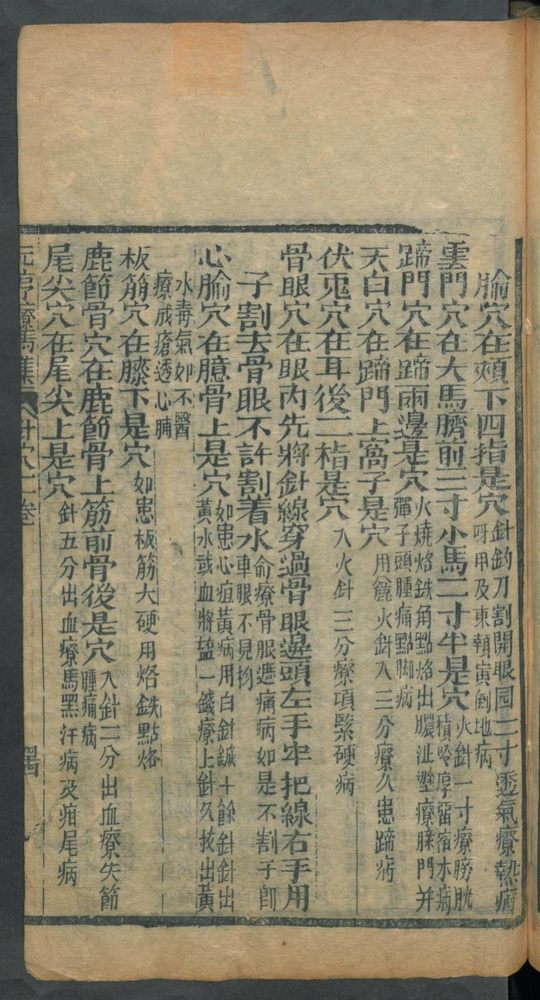 腧穴在頰下四指是穴 針鈎刀割開眼圓二寸透氣療熱病呀甲及東顙寅倒地病
雲門穴在大馬臍前三寸小馬二寸半是穴 火針一寸療膀胱積冷停留宿水病
蹄門穴在蹄兩邊是穴 火燒烙鉄角點烙出膿沚療䐁門并彈子頭腫痛點脚病
天白穴在蹄門上窩子是穴 用火針入三分療久患蹄病
伏兎穴在耳後二指是穴 入火針三分療項緊硬病
骨眼穴在眼内先將針線穿過骨眼邊頭左手牢把線右手用
子割去骨眼不許割着水 療骨眼遮痛病如是不割子即車眼不見物
心腧穴在臆骨上是穴 如患心疽黃病用白針鍼十餘針針出黃水或血將塩一錢療上針久扙出黃
水毒氣如不醫療成瘡透心肺
板筋穴在膝下是穴 如患板筋大硬用烙鉄點烙
鹿節骨穴在鹿節骨上筋前骨後是穴 入針二分出血療失節腫痛病
尾尖穴在尾尖上是穴 針五分出血療馬黑汗病及疳尾病
元亨療馬集 針穴一卷